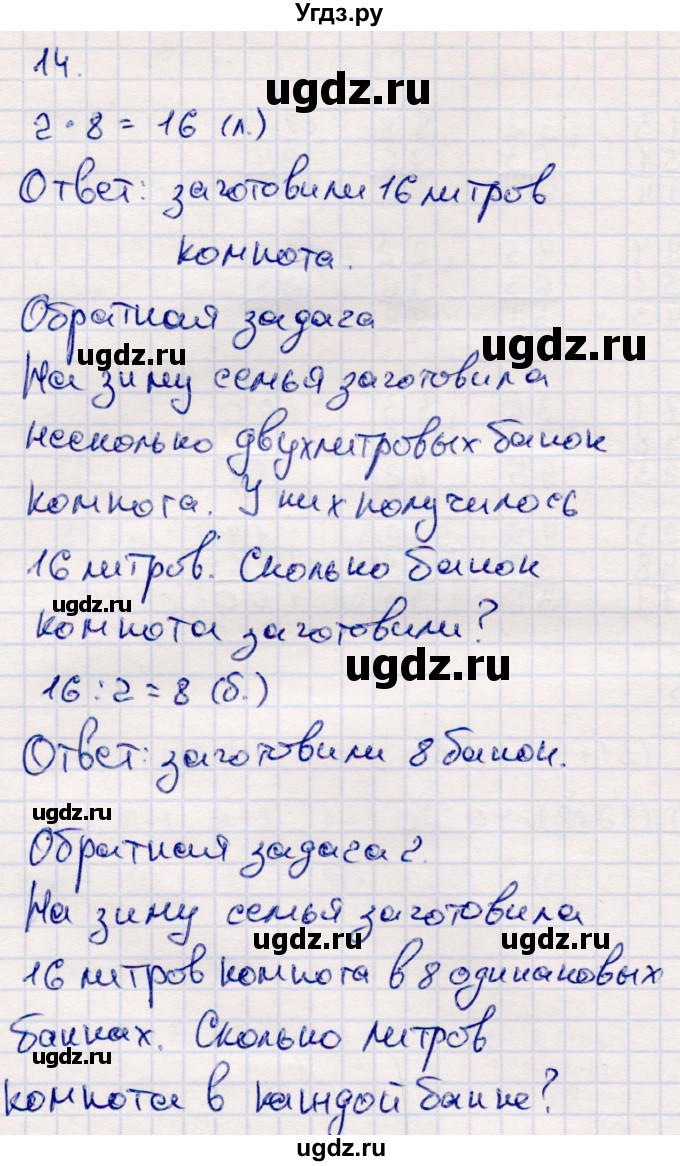 Угдз.ру
14.
ugdz.ru
2 · 8 = 16 (л.)
Ответ: заготовили 16 литров
компота.
Обратная задача
ugdz.ru
ugdz.ru
На зиму семья заготовила
несколько двухлитровых банок
компота. У них получилось
16 литров. Сколько банок
ugdz.ru
компота заготовили?
ugdz.ru
16 : 2 = 8 (б.)
Ответ: заготовили 8 банок.
ugdz.ru
Обратная задача 2.
На зиму семья заготовила
ugdz.ru
ugdz.ru
16 литров компота в 8 одинаковых
банках. Сколько литров
ugdz.ru
компота в каждой банке?
ugdz.ru